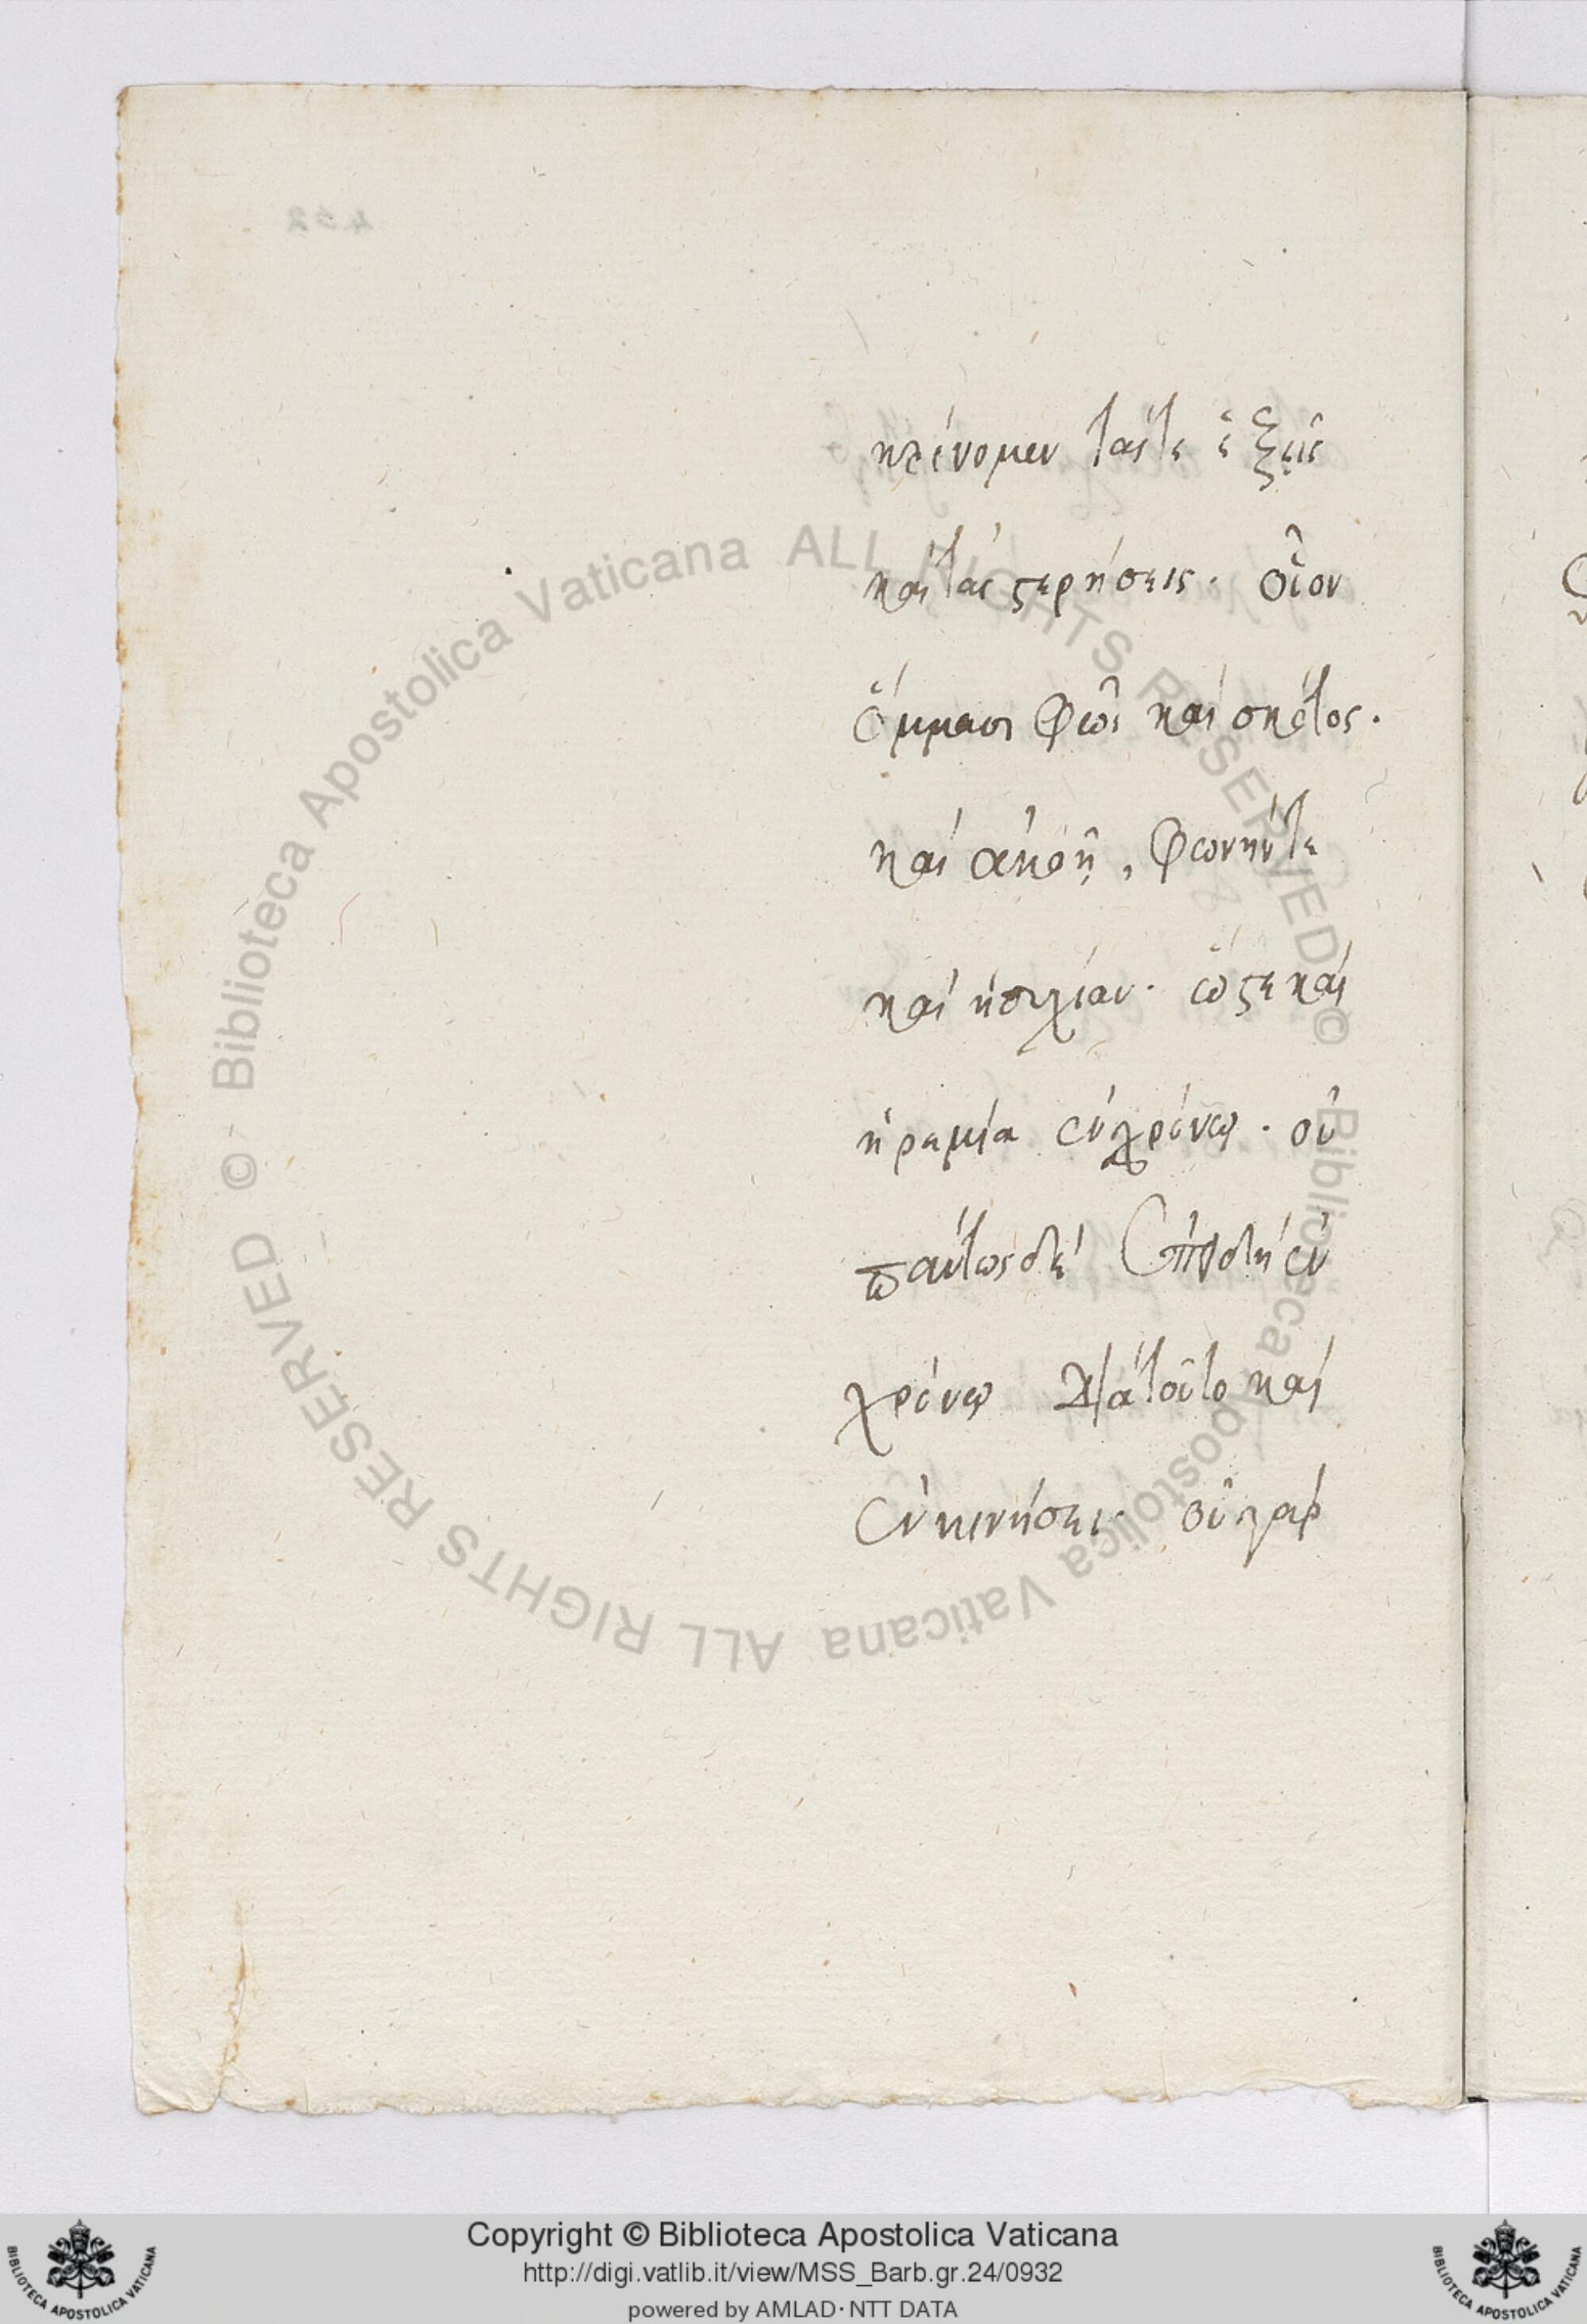 κρίνομεν τάς τε ἕξεις
καὶ τὰς στερήσεις. οἷον
ὄμμασι φῶς καὶ σκότος.
καὶ ἀκοῇ, φωνήν τε
καὶ ἡσυχίαν. ὥστε καὶ
ἠρεμία ἐν χρόνῳ. οὐ
πάντως δὲ ἐπειδὴ ἐν
χρόνῳ διὰ τοῦτο καὶ
ἐν κινήσει. οὐ γὰρ
© Biblioteca Apostolica Vaticana ALL RIGHTS RESERVED
© Biblioteca Apostolica Vaticana ALL RIGHTS RESERVED
Copyright © Biblioteca Apostolica Vaticana
http://digi.vatlib.it/view/MSS_Barb.gr.24/0932
powered by AMLAD · NTT DATA
BIBLIOTECA APOSTOLICA VATICANA
BIBLIOTECA APOSTOLICA VATICANA